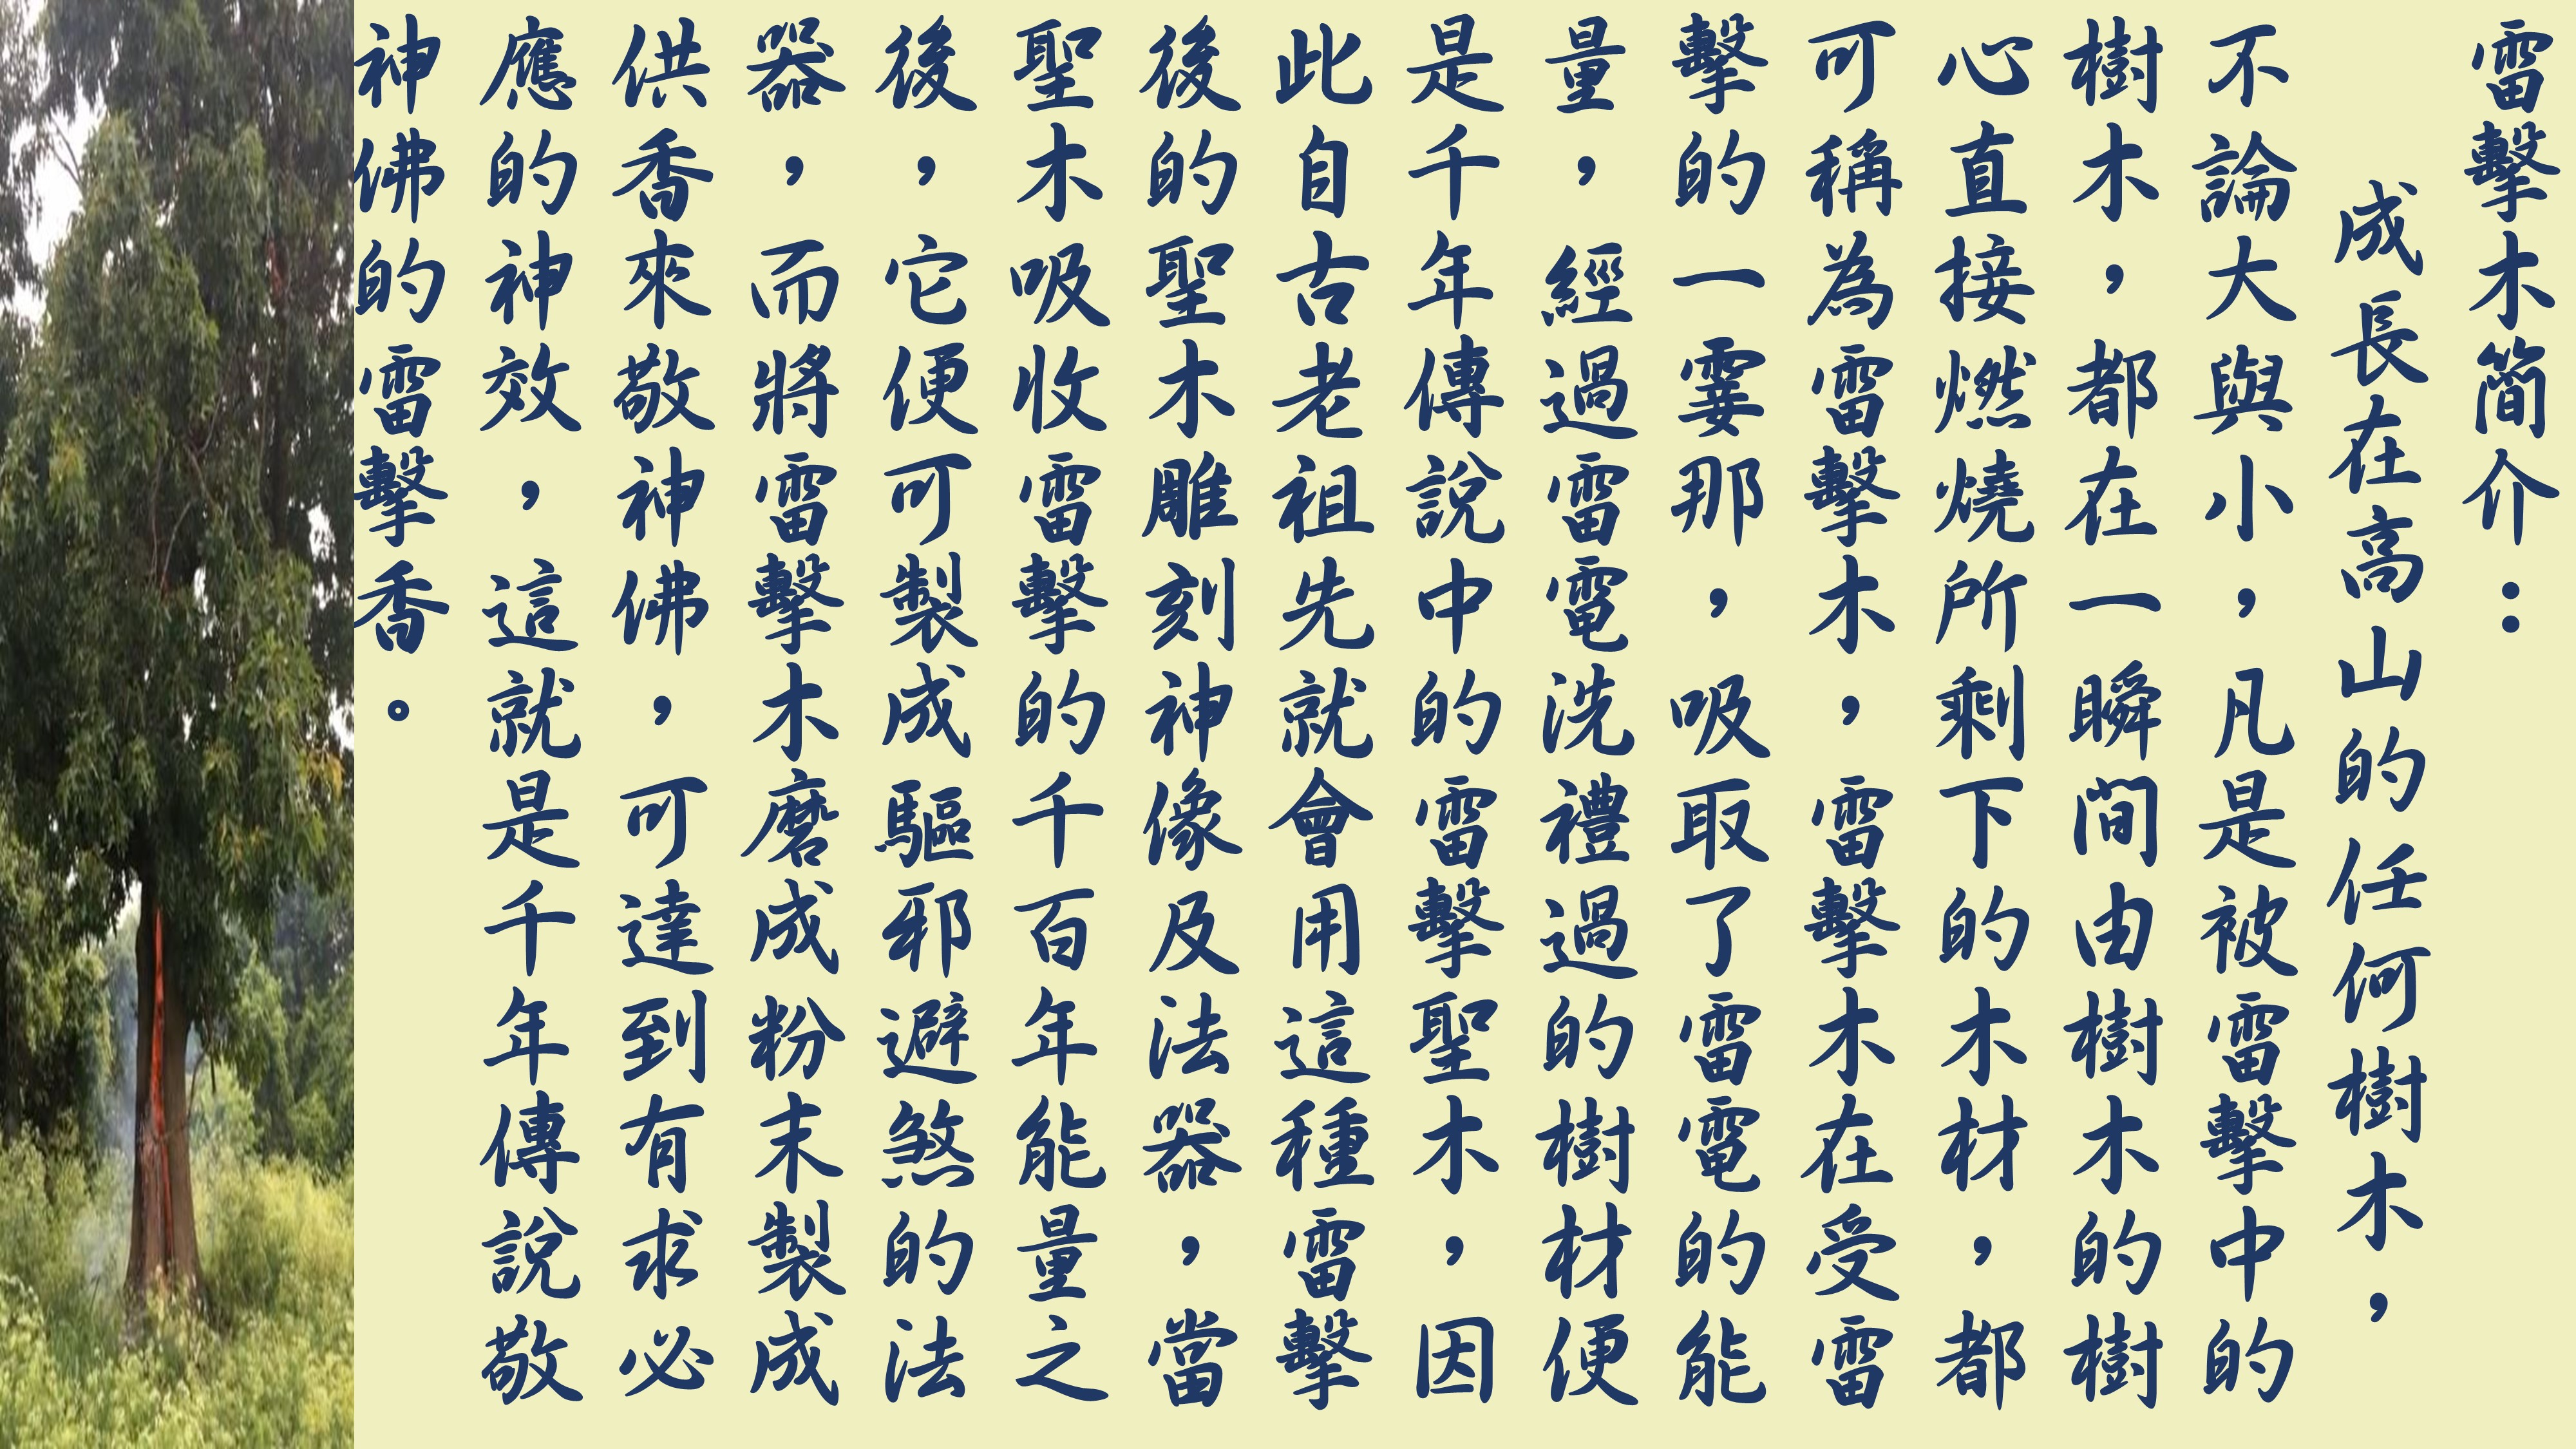 雷擊木簡介：
成長在高山的任何樹木，
不論大與小，凡是被雷擊中的
樹木，都在一瞬間由樹木的樹
心直接燃燒所剩下的木材，都
可稱為雷擊木，雷擊木在受雷
擊的一霎那，吸取了雷電的能
量，經過雷電洗禮過的樹材便
是千年傳說中的雷擊聖木，因
此自古老祖先就會用這種雷擊
後的聖木雕刻神像及法器，當
聖木吸收雷擊的千百年能量之
後，它便可製成驅邪避煞的法
器，而將雷擊木磨成粉末製成
供香來敬神佛，可達到有求必
應的神效，這就是千年傳說敬
神佛的雷擊香。